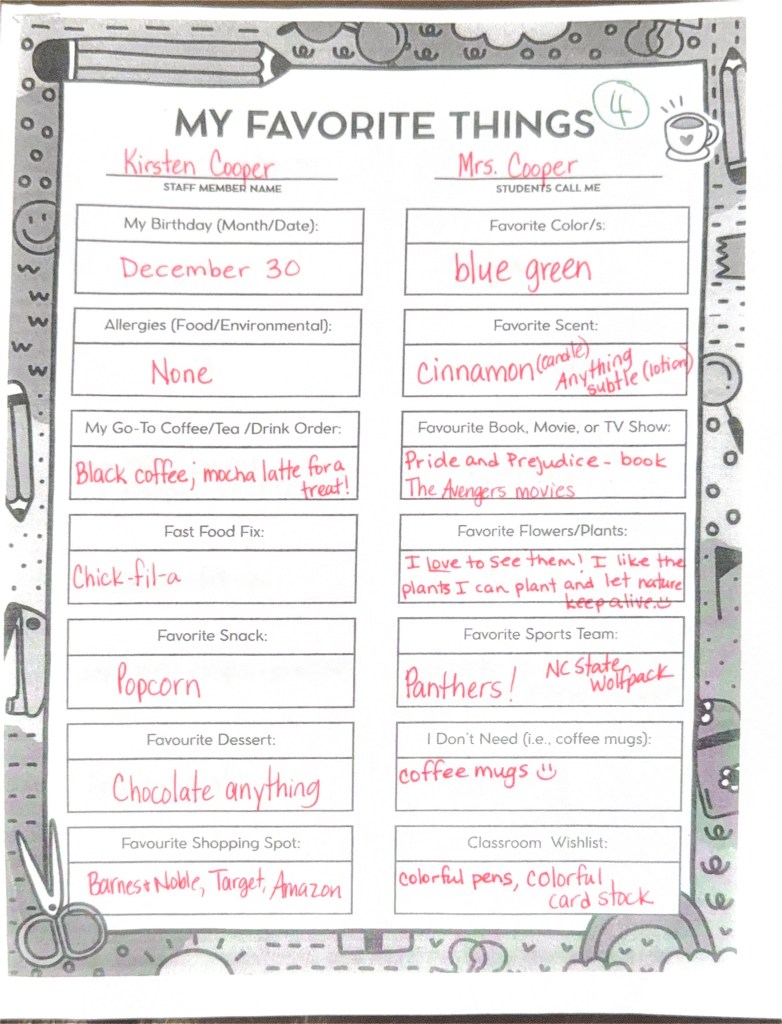 MY FAVORITE THINGS
4
Kirsten Cooper
STAFF MEMBER NAME
Mrs. Cooper
STUDENTS CALL ME
My Birthday (Month/Date):
December 30
Favorite Color/s:
blue green
Allergies (Food/Environmental):
None
Favorite Scent:
Cinnamon (candle) Anything
subtle (lotion)
My Go-To Coffee/Tea /Drink Order:
Black coffee; mocha latte for a
treat!
Favourite Book, Movie, or TV Show:
Pride and Prejudice - book
The Avengers movies
Fast Food Fix:
Chick-fil-a
Favorite Flowers/Plants:
I love to see them! I like the
plants I can plant and let nature
keep alive.
Favorite Snack:
Popcorn
Favorite Sports Team:
Panthers! NC State
Wolfpack
Favourite Dessert:
Chocolate anything
I Don't Need (i.e., coffee mugs):
coffee mugs
Favourite Shopping Spot:
Barnes + Noble, Target, Amazon
Classroom Wishlist:
colorful pens, colorful
card stock